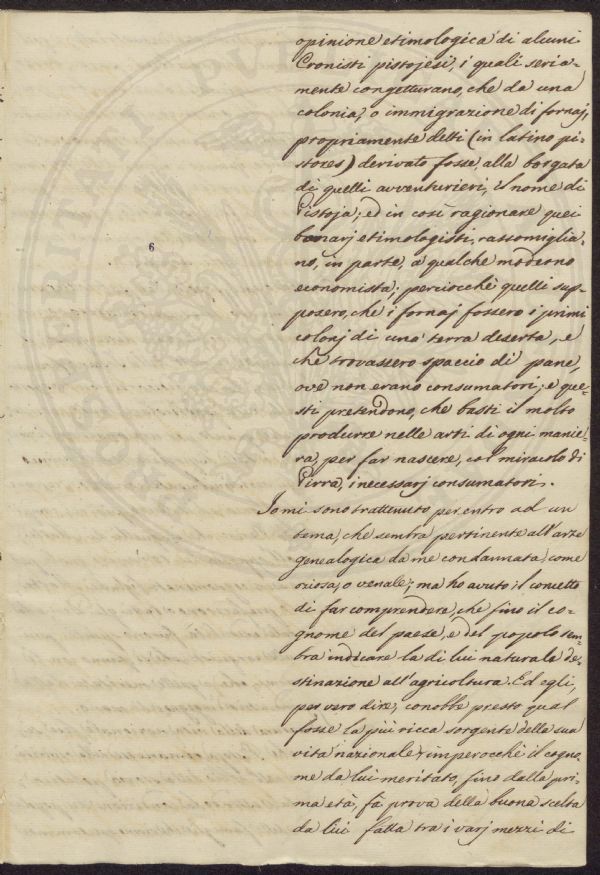 opinione etimologica di alcuni
Cronisti pistojesi, i quali seria-
mente congetturano, che da una
colonia, o immigrazione di fornaj,
propriamente detti (in latino pi-
stores) derivato fosse, alla borgata
di quelli avventurieri, il nome di
Pistoja; ed in così ragionare quei
bonarj etimologisti, rassomiglia-
no, in parte, a qualche moderno
economista; perciocchè quelli sup-
posero, che i fornaj fossero i primi
colonj di una terra deserta, e
che trovassero spaccio di pane,
ove non erano consumatori; e que-
sti pretendono, che basti il molto
produrre nelle arti di ogni manie-
ra, per far nascere, col miracolo di
Pirra, i necessarj consumatori.
Io mi sono trattenuto per entro ad un
tema, che sembra pertinente all'arte
genealogica da me condannata, come
oziosa, o venale; ma ho avuto il concetto
di far comprendere, che fino il co-
gnome del paese, e del popolo sem-
bra indicare la di lui naturale de-
stinazione all'agricoltura. Ed egli,
per vero dire, conobbe presto qual
fosse la più ricca sorgente della sua
vita nazionale; imperocchè il cogno-
me da lui meritato, fino dalla pri-
ma età, fà prova della buona scelta
da lui fatta tra i varj mezzi di
6